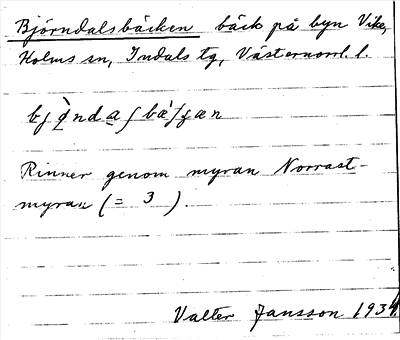 Björndalsbäcken bäck på byn Vike,
Holms sn, Indals tg, Västernorrl. l.
Rinner genom myran Norrast-
myran (= 3 ).
Valter Jansson 1934